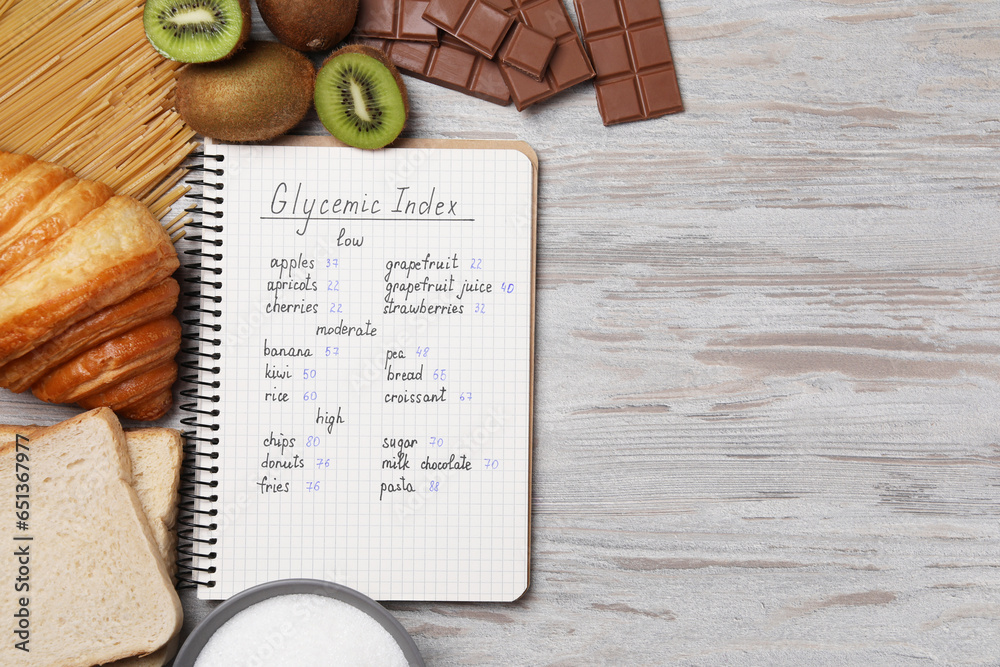 Glycemic Index
low
apples 37 grapefruit 22
apricots 22 grapefruit juice 40
cherries 22 strawberries 32
moderate
banana 57 pea 48
kiwi 50 bread 65
rice 60 croissant 67
high
chips 80 sugar 70
donuts 76 milk chocolate 70
fries 76 pasta 88
Adobe Stock | #651367977